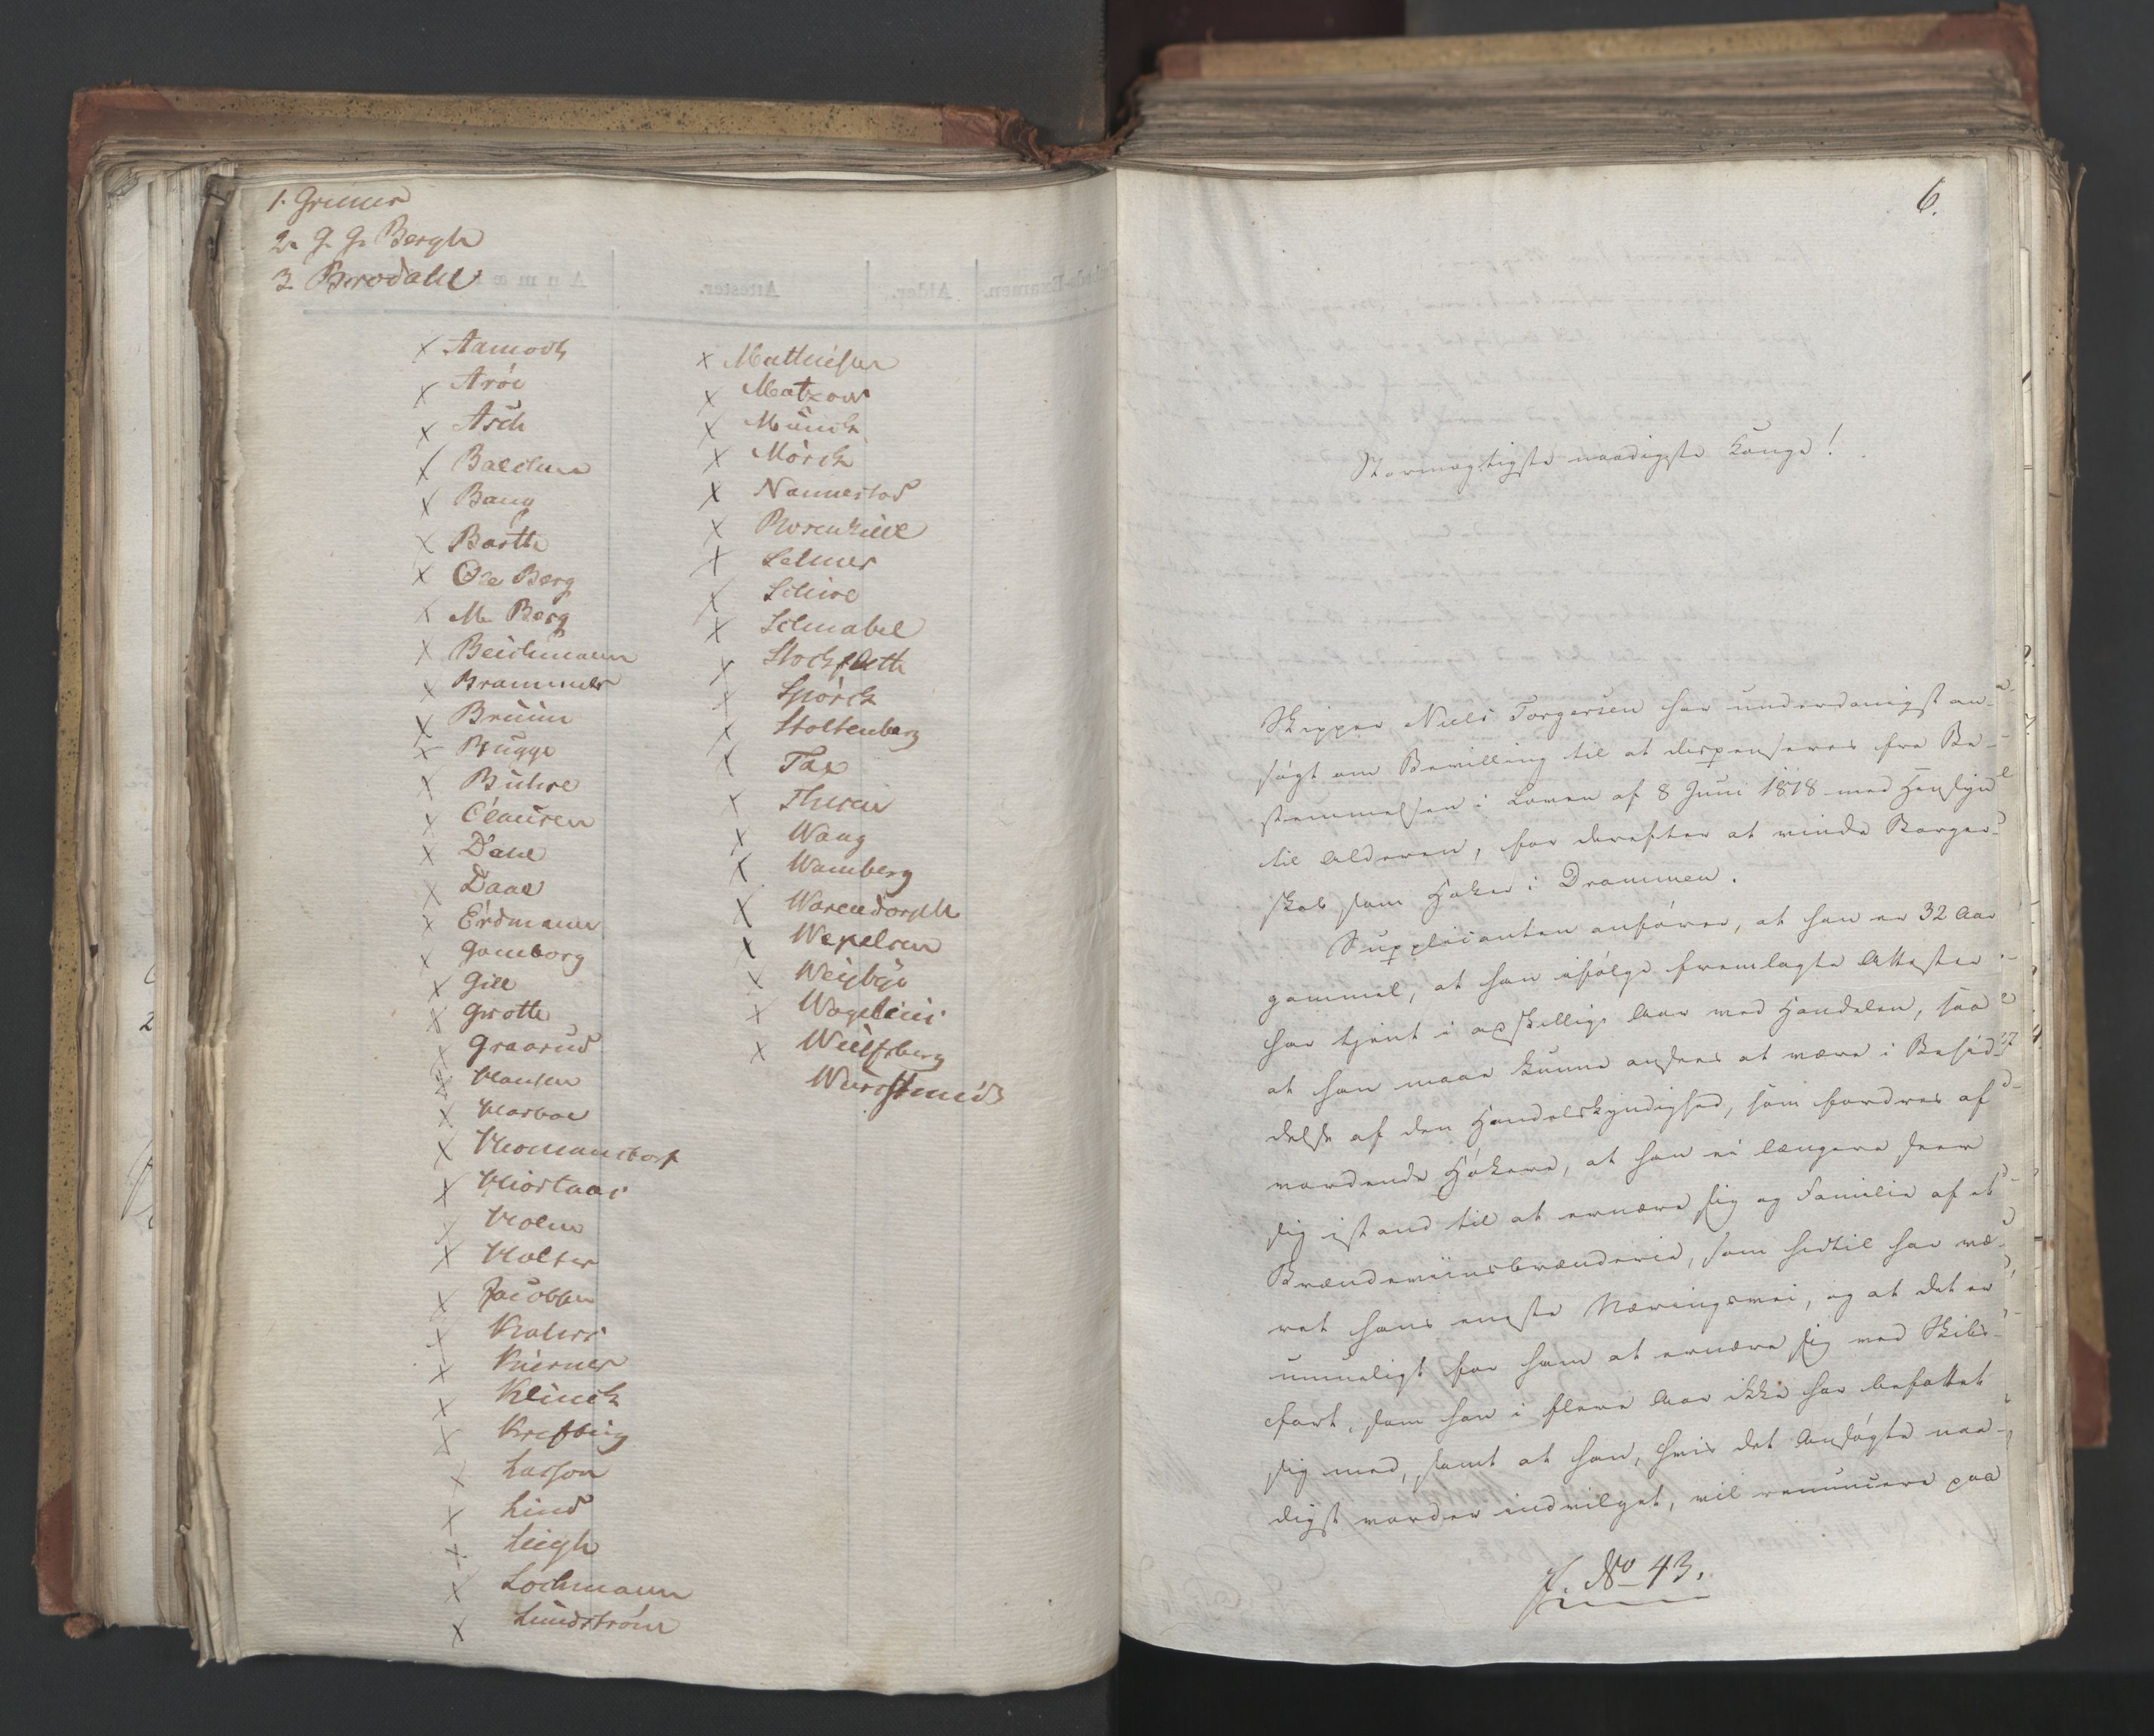 1. Greiner
2. G. G. Bergh
3. Brodahl
Aamodt
Aröe
Asch
Balchen
Bang
Barth
Ole Berg
M. Berg
Beichmann
Brammer
Bruun
Bugge
Buhre
Clausen
Dahl
Daae
Erdmann
Gamborg
Gill
Grotte
Graarud
Hansen
Harboe
Hiortaas
Holm
Holter
Jacobsen
Krohers
Kierner
Klinck
Krefting
Lasson
Lind
Leigh
Lochmann
Lundström
Mathiesen
Matzow
Münch
Mörch
Nannestad
Rosenkilde
Selmer
Schive
Schnabel
Stockfleth
Spörck
Stoltenberg
Tax
Wang
Wamberg
Warendorph
Wexelsen
Weybye
Wülfsberg
6.
Stormægtigste naadigste Konge!
Skipper Niels Torgersen har underdanigst an-
søgt om Bevilling til at dispenseres fra Be-
stemmelsen i Loven af 8 Juni 1818 med Hensyn
til Alderen, for derefter at vinde Borger-
skab som Høker i Drammen.
Supplicanten anfører, at han er 32 Aar
gammel, at han ifølge fremlagte Attester
har tjent i adskillige Aar ved Handelen, saa
at han maae kunne ansees at være i Besid-
delse af den Handelskyndighed, som fordres af
vordende Høkere, at han ei længere seer
sig istand til at ernære sig og Familie af et
Brændeviinsbrænderie, som hidtil har væ-
ret hans eneste Næringsvei, og at det er
umueligt for ham at ernære sig ved Skibs-
fart, som han i flere Aar ikke har befattet
sig med, samt at han, hvis det Ansøgte naa-
digst vorder indvilget, vil renuncere paa
No 43.